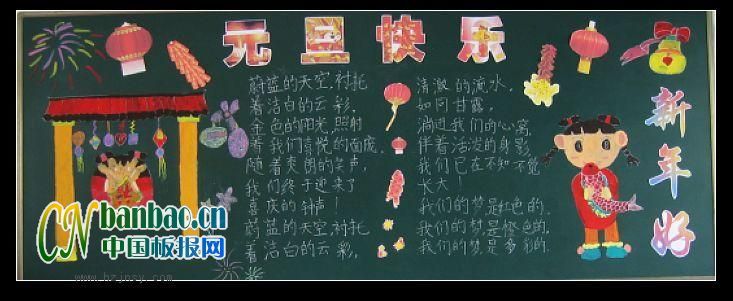 元旦快乐
蔚蓝的天空,衬托
着洁白的云彩,
金色的阳光,照射
着我们喜悦的面庞,
随着爽朗的笑声,
我们终于迎来了
喜庆的钟声!
蔚蓝的天空,衬托
着洁白的云彩,
清澈的流水,
如同甘露,
淌过我们的心窝,
伴着活泼的身影,
我们已在不知不觉
长大!
我们的梦是红色的,
我们的梦是橙色的,
我们的梦是多彩的.
新年好
CNbanbao.cn
中国板报网